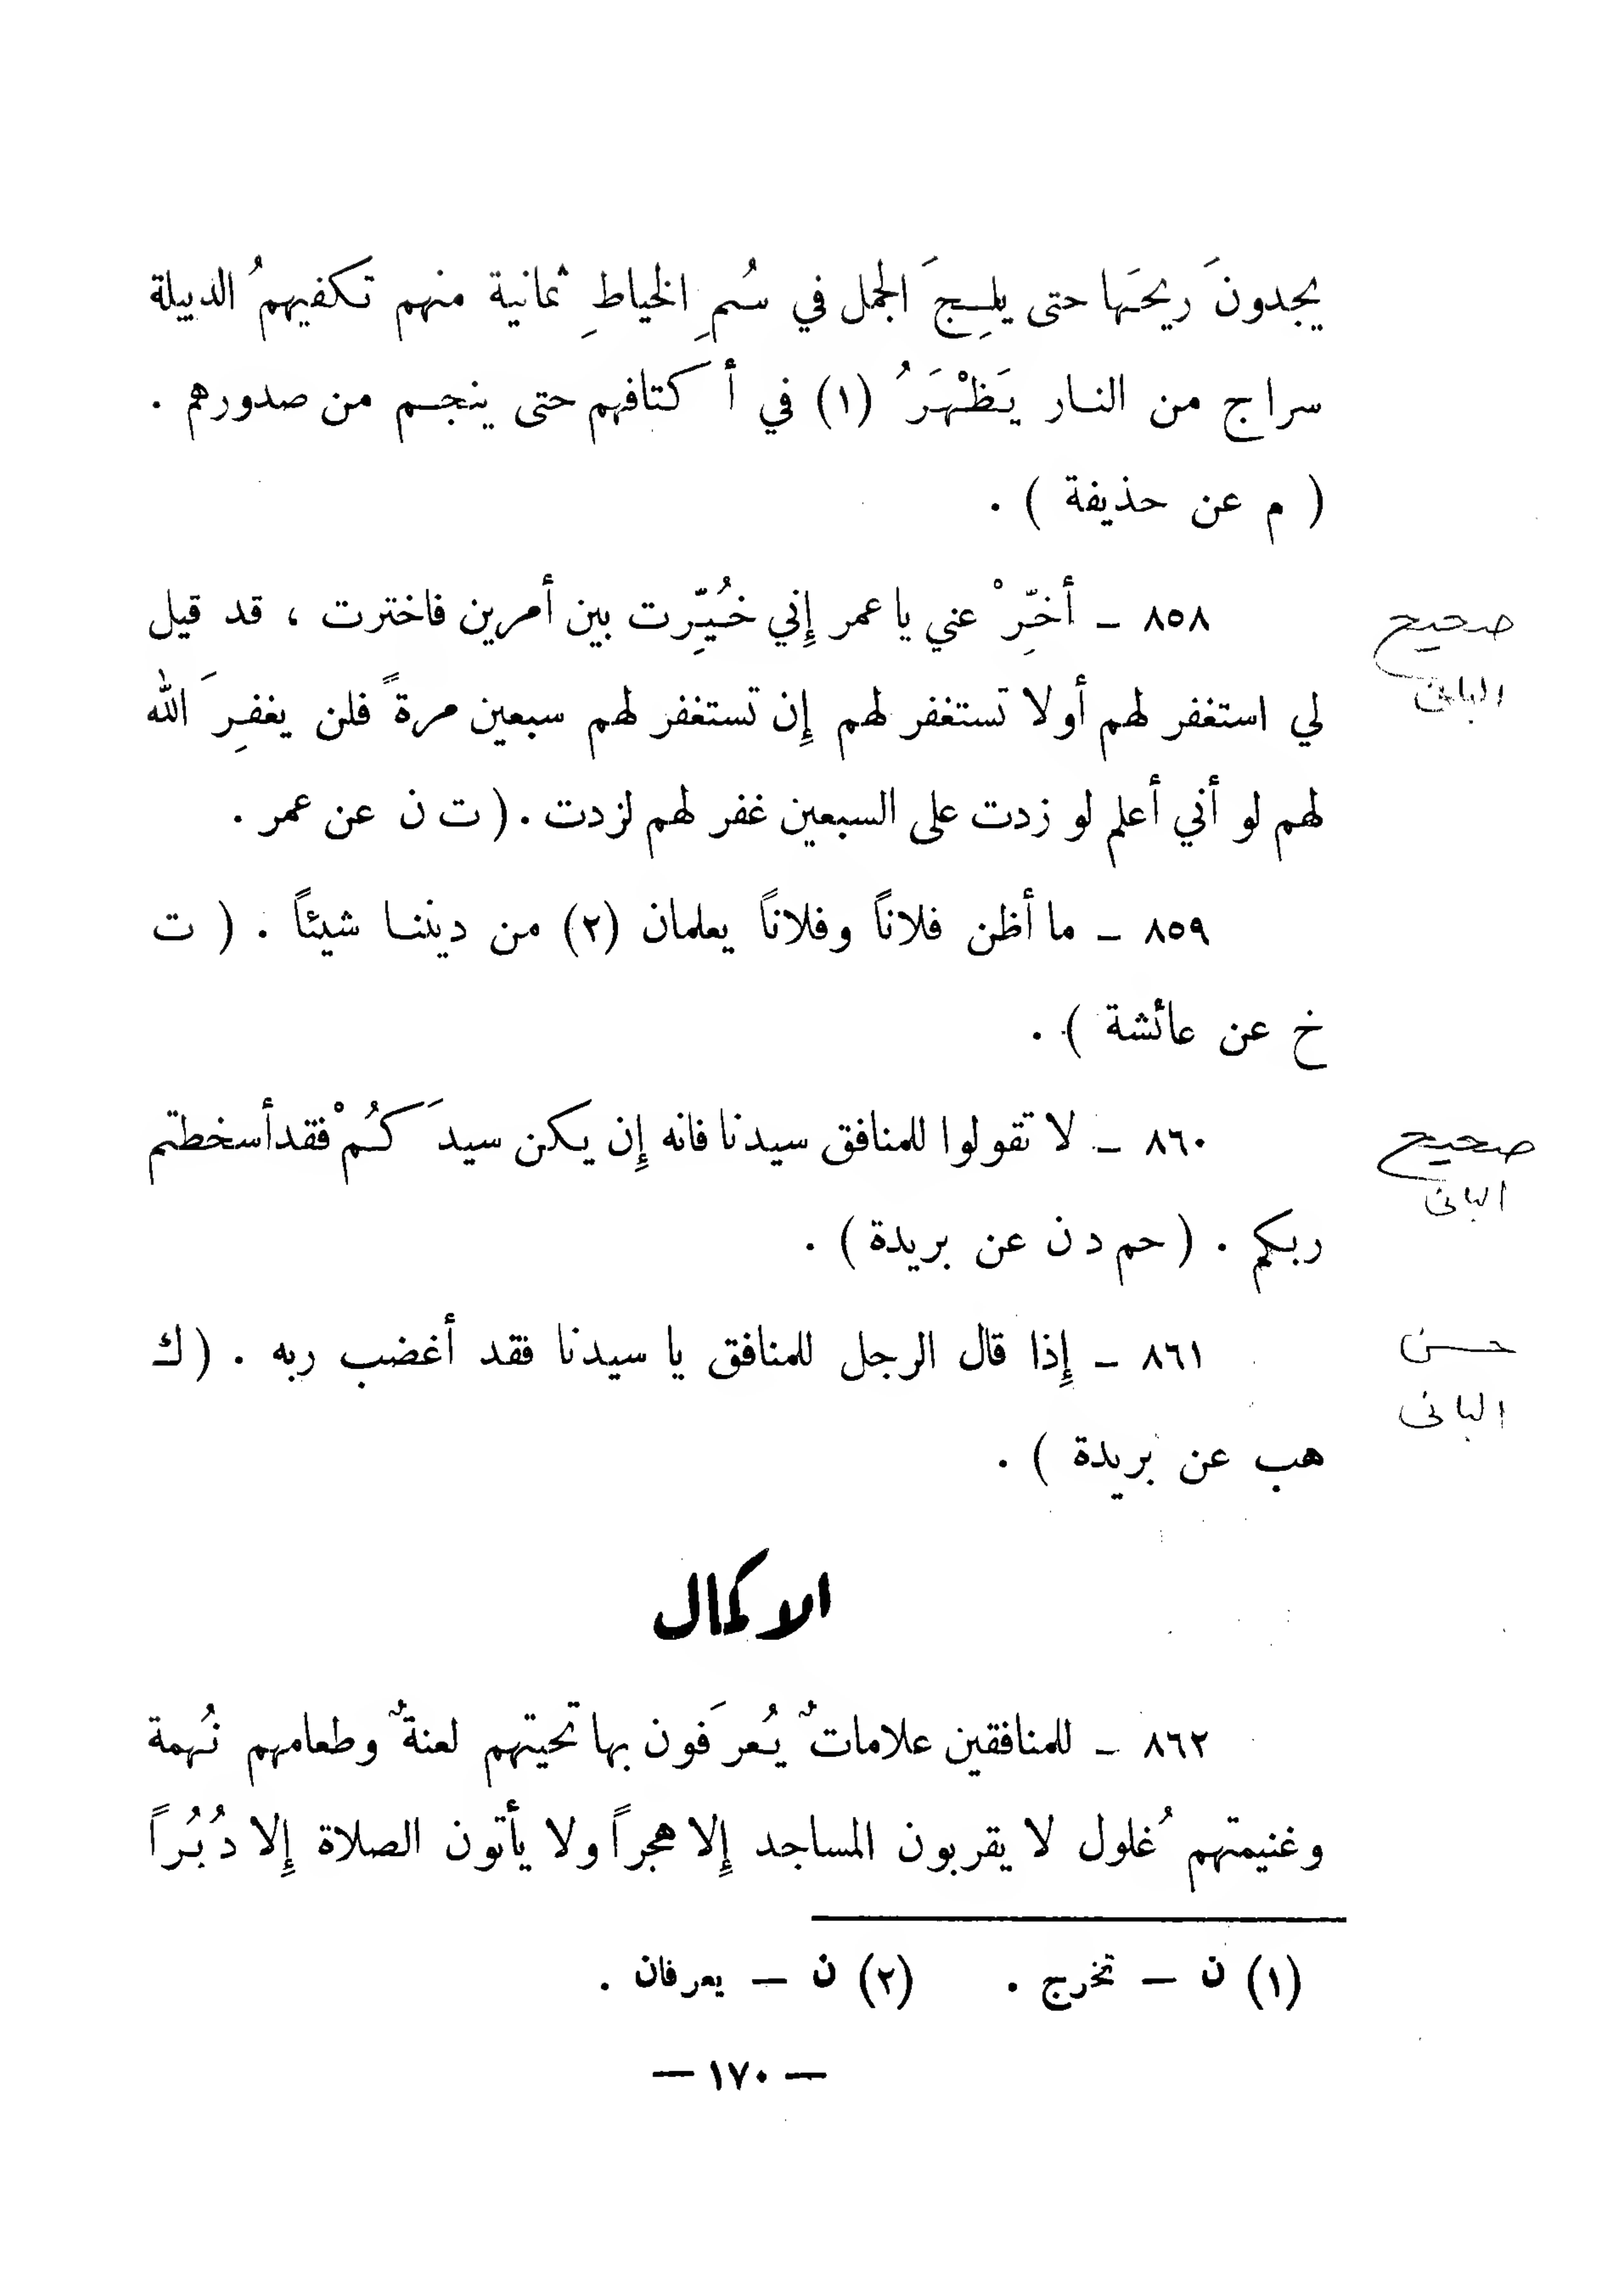 يجدونَ ريحَها حتى يلِجَ الجمل في سُمِ الخياطِ ثمانية منهم تكفيهمُ الدبيلة
سراج من النار يَظْهَرُ (١) في أكتافهم حتى ينجم من صدورهم .
( م عن حذيفة ) .
٨٥٨ - أخِّرْ عني يا عمر إِني خُيِّرت بين أمرين فاخترت ، قد قيل
صحيح
البانى
لي استغفر لهم أولا تستغفر لهم إِن تستغفر لهم سبعين مرةً فلن يغفِرَ الله
لهم لو أني أعلم لو زدت على السبعين غفر لهم لزدت . ( ت ن عن عمر .
٨٥٩ - ما أظن فلاناً وفلاناً يعلمان (٢) من ديننا شيئاً . ( ت
خ عن عائشة ) .
٨٦٠ - لا تقولوا للمنافق سيدنا فانه إِن يكن سيدَكُمْ فقد أسخطتم
صحيح
البانى
ربكم . ( حم د ن عن بريدة ) .
٨٦١ - إِذا قال الرجل للمنافق يا سيدنا فقد أغضب ربه . ( ك
حسن
البانى
هب عن بريدة ) .
الاكمال
٨٦٢ - للمنافقين علاماتٌ يُعرَفون بها تحيتهم لعنةٌ وطعامهم نُهمة
وغنيمتهم غُلول لا يقربون المساجد إِلا هجراً ولا يأتون الصلاة إِلا دُبُراً
(١) ن — تخرج . (٢) ن — يعرفان .
— ١٧٠ —